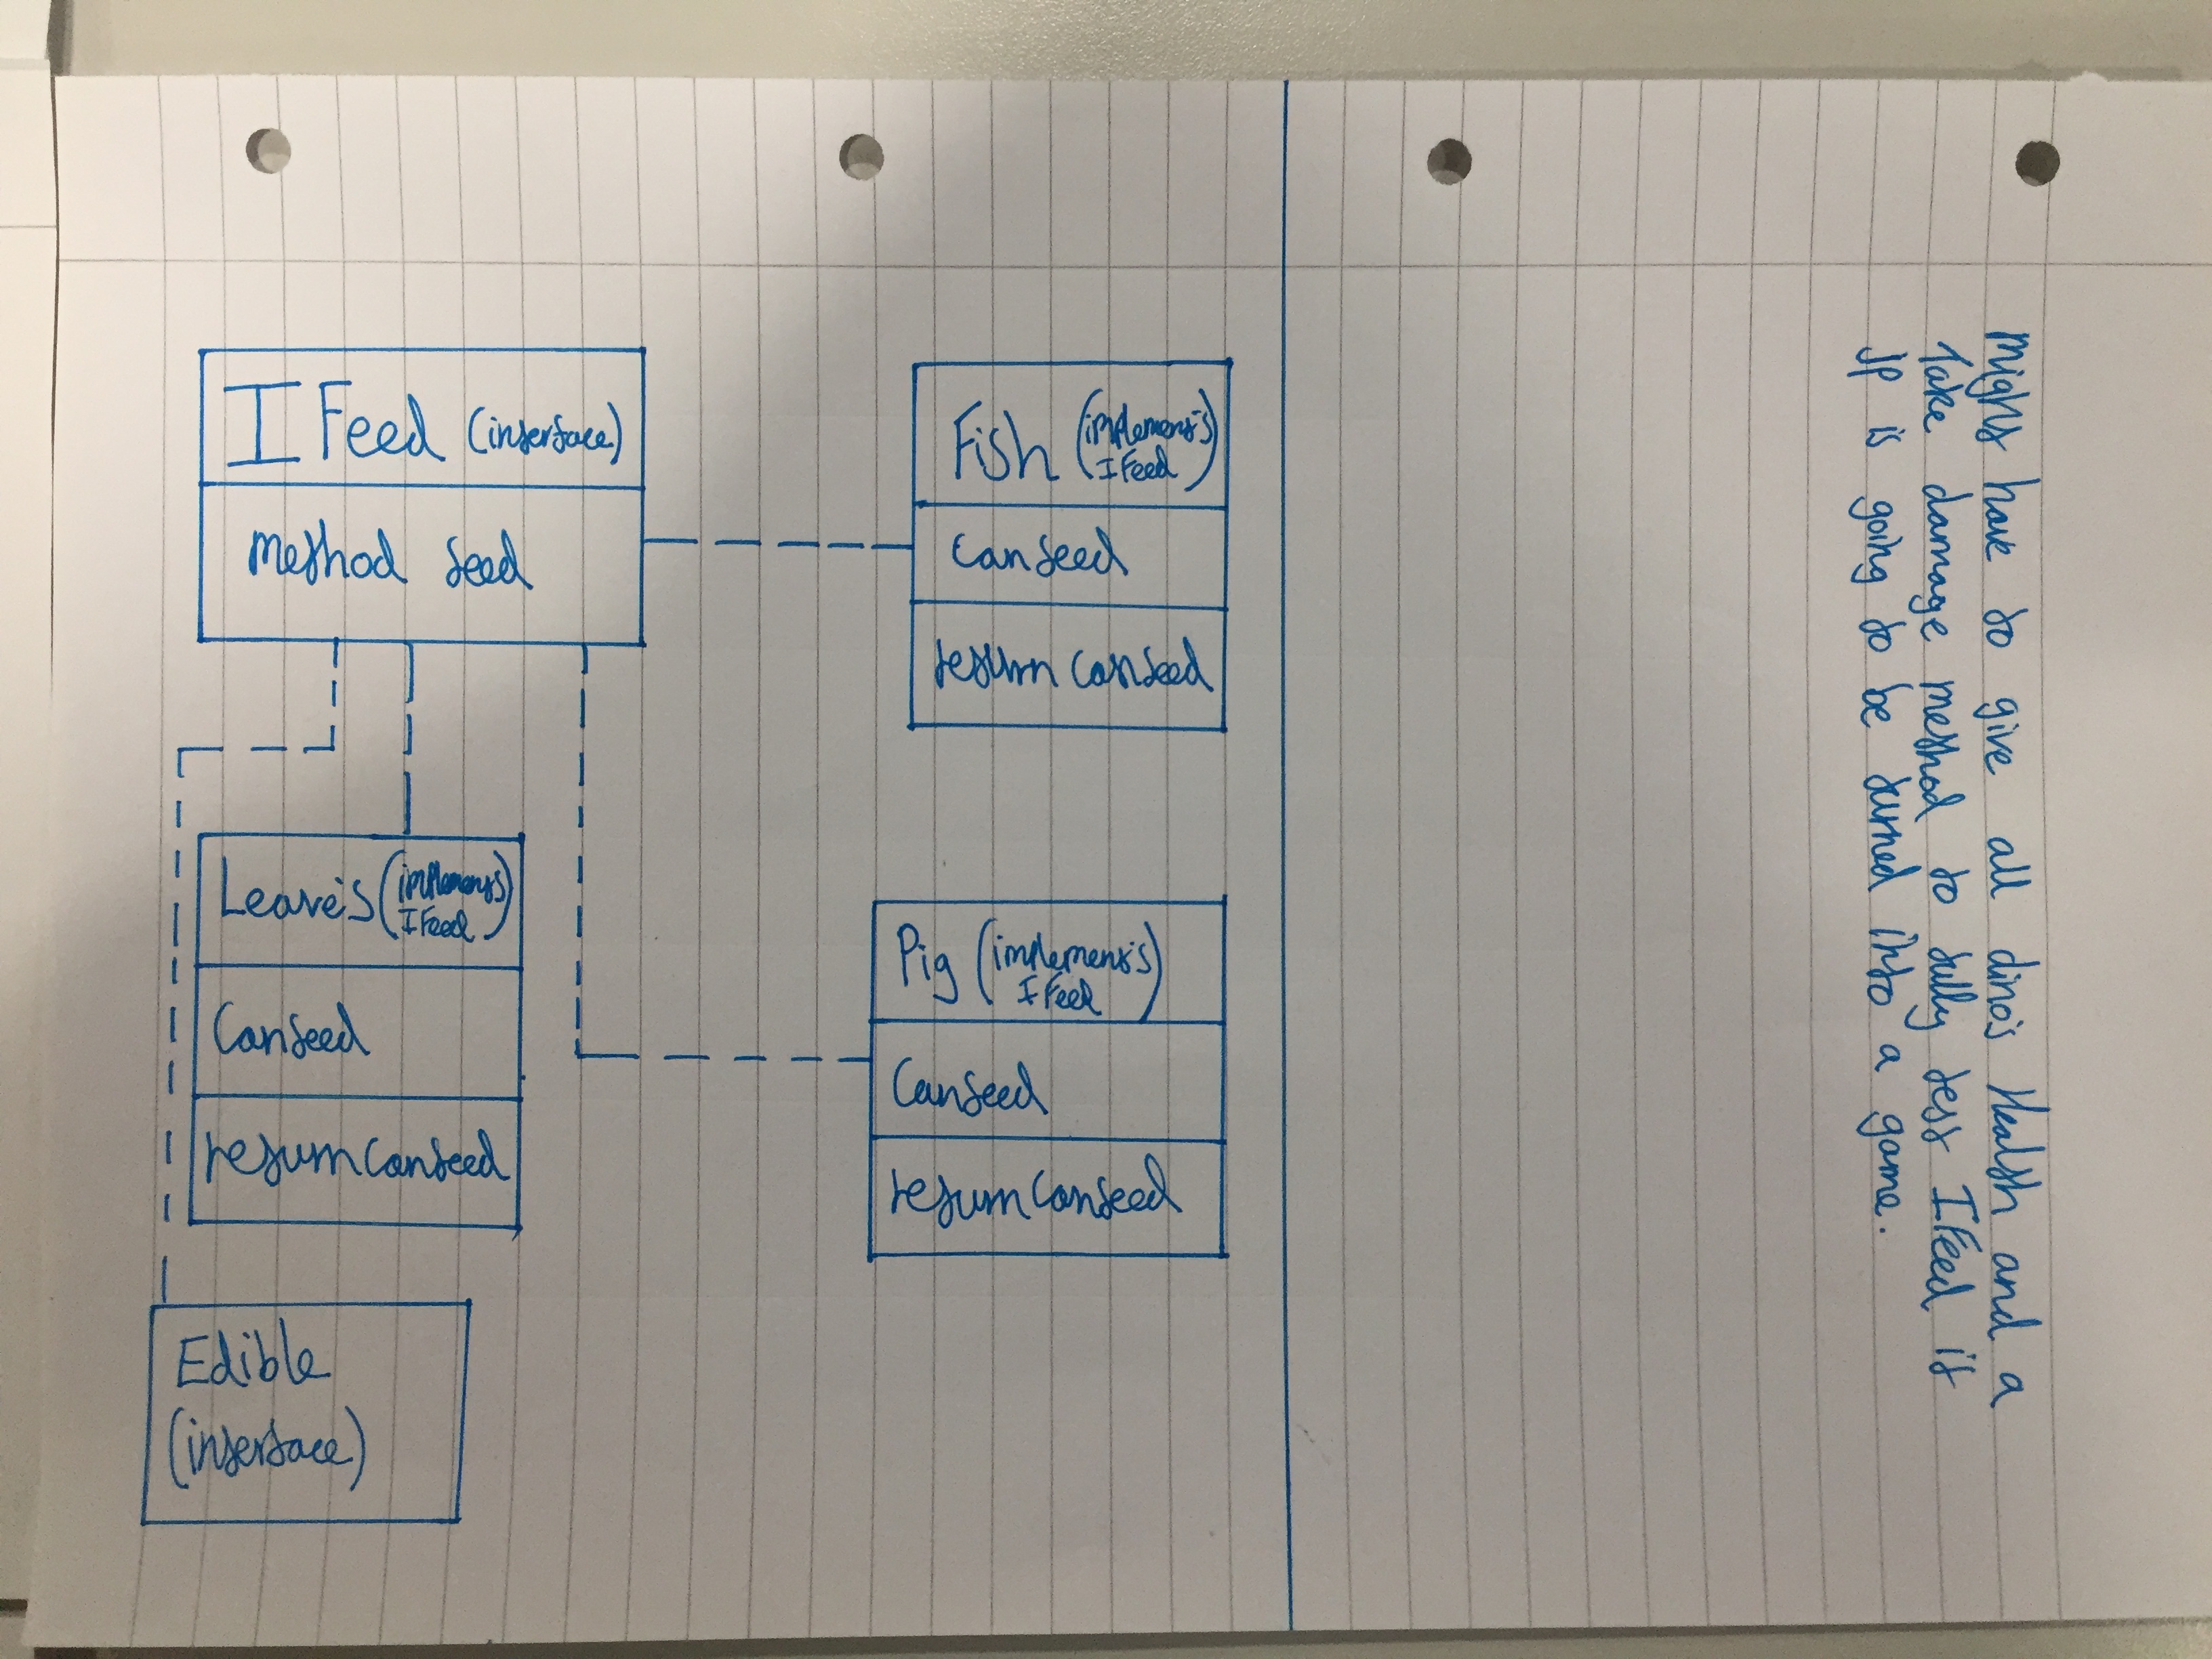 I Feed (interface)
method feed
Fish (implement's
I Feed)
canfeed
return canfeed
Leave's (implement's
I Feed)
Canfeed
return canfeed
Pig (implement's
I Feed)
Canfeed
return canfeed
Edible
(interface)
might have to give all dino's Health and a
Take damage method to fully test IFeed if
JP is going to be turned into a game.